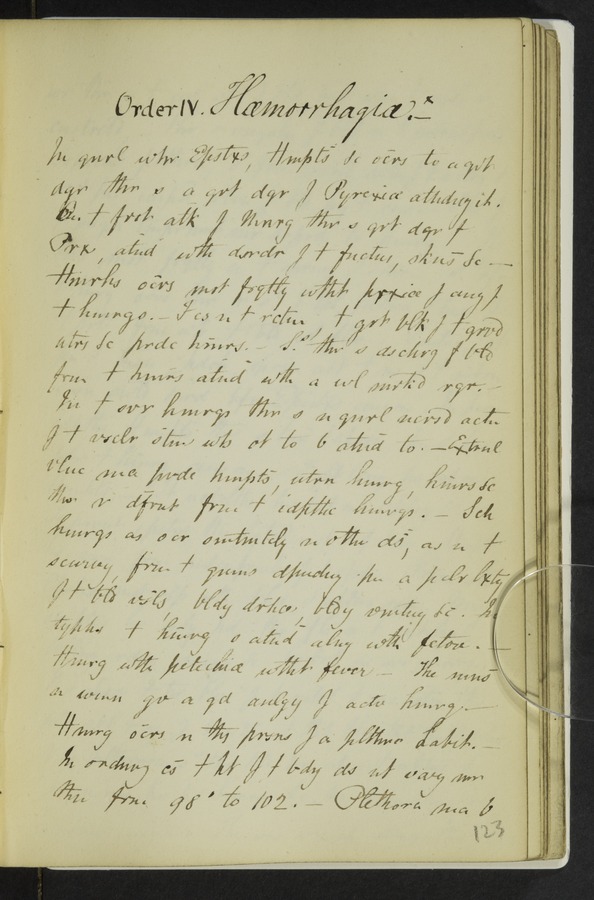 Order IV. Hæmorrhagiæ.
In gnrl whr Epstxs, Hmpts &c ocrs to a grt
dgr thr s a grt dgr f Pyrexiæ athdng it.
In t frst atk f Mnrg thr s grt dgr f
Prx, atnd wth dsrdr f t fnctns, skns &c —
Hmrhs ocrs mst frqtly wtht prxiæ f any f
t hmrgs. — I cs n t rctm t grt blk f t grvd
utrs &c prdc hmrs. — S. thr s a dschrg f bld
frm t hmrs atnd wth a wl mrkd rgr. —
In t ovr hmrgs thr s n gnrl ncrsd actn
f t vsclr stm wh ot to b atnd to. — Extrnl
vlnc ma prdc hmpts, utrn hmrg, hmrs &c
ths r dfrnt frm t idpthc hmrgs. — Sch
hmrgs as ocr smtmtcly n othr ds, as n t
scurvy frm t gums dpndng pn a pclr lxty
f t bld vsls, bldy drhœ bldy vmtng &c. In
typhs t hmrg s atnd alng wth fetor. —
Hmrg wth petechiæ wtht fever — The mns
n wmn gv a gd anlgy f actv hmrg. —
Hmrg ocrs n ths prsns f a plthrc habit. —
In ordnry cs t ht f t bdy ds nt vary mr
thn frm 98° to 102. — Plethora ma b
123